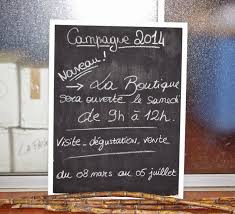 Campagne 2014
Nouveau !
→ La Boutique
sera ouverte le samedi
de 9h à 12h.
Visite_dégustation_vente
du 08 mars au 05 juillet